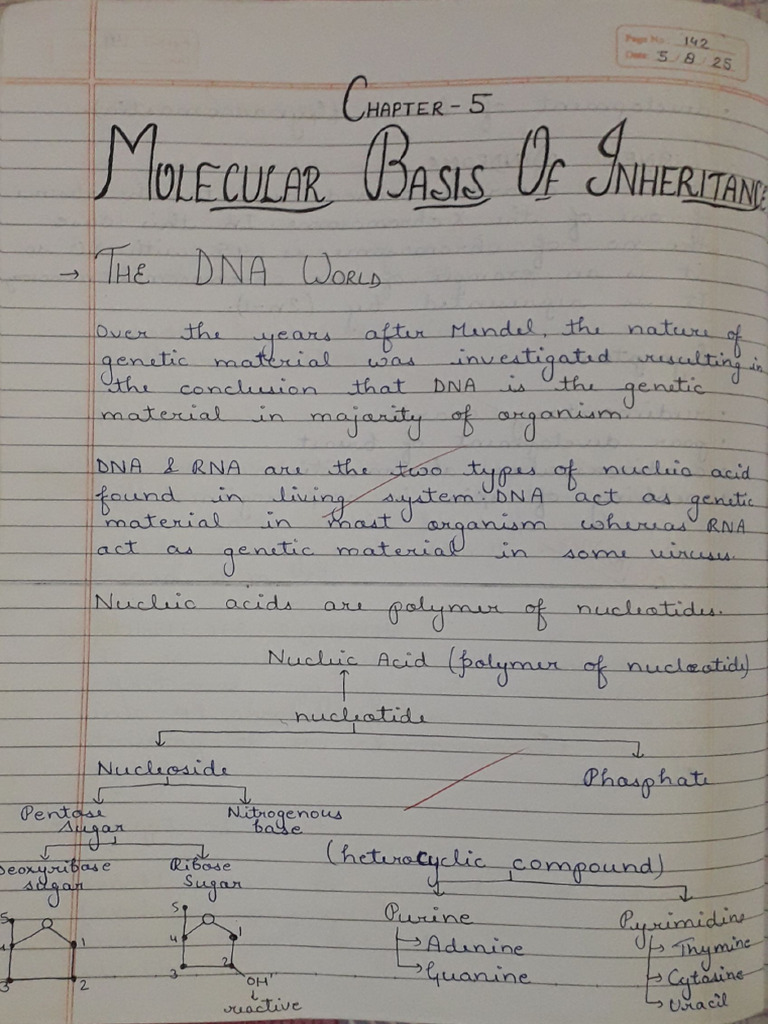 Page No. 142
Date 5/8/25
CHAPTER-5
MOLECULAR BASIS OF INHERITANCE
→ THE DNA WORLD
Over the years after Mendel, the nature of
genetic material was investigated resulting in
the conclusion that DNA is the genetic
material in majority of organism.
DNA & RNA are the two types of nucleic acid
found in living system. DNA act as genetic
material in most organism whereas RNA
act as genetic material in some viruses.
Nucleic acids are polymer of nucleotides.
Nucleic Acid (polymer of nucleotide)
nucleotide
Nucleoside Phosphate
Pentose sugar Nitrogenous base
(heterocyclic compound)
Deoxyribose sugar Ribose Sugar
Purine Pyrimidine
Adenine Thymine
Guanine Cytosine
Uracil
5 4 1 3 2
5 4 1 3 2
OH
reactive